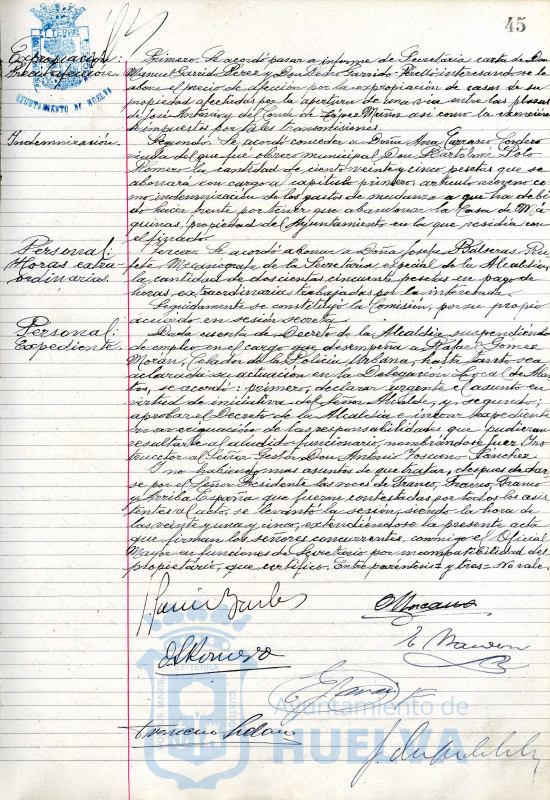 45
Expropiación:
Precio afección.
AYUNTAMIENTO DE HUELVA
Primero. Se acordó pasar a informe de Secretaría carta de Don
Manuel Garrido Pérez y Don Pedro Garrido Perelló interesando se le
abone el precio de afección por la expropiación de casas de su
propiedad afectadas por la apertura de una vía entre las plazas
de José Antonio y del Conde de López Muñoz así como la
de impuestos por tales transmisiones.
Indemnización.
Segundo. Se acordó conceder a Doña Ana Carrasco Cordero
viuda del que fué obrero municipal Don Bartolomé Polo
Romero la cantidad de ciento veinte y cinco pesetas que se
abonará con cargo a capítulo primero, artículo noveno co-
mo indemnización de los gastos de mudanza a que ha de bi-
do hacer frente por tener que abandonar la Casa de Má-
quinas, propiedad del Ayuntamiento en la que residía con
el finado.
Personal:
Horas extra-
ordinarias.
Tercero. Se acordó abonar a Doña Josefa Balseras
Mecanógrafa de la Secretaría especial de la Alcaldía
la cantidad de doscientas cincuenta pesetas en pago de
horas extraordinarias trabajadas a la interesada.
Seguidamente se constituyó la Comisión, por su propio
acuerdo en sesión secreta.
Personal:
Expediente.
Dada cuenta de Decreto de la Alcaldía suspendiendo
de empleo en el cargo que desempeña a Rafael Gómez
Morán, Celador de la Policía Urbana, hasta tanto sea
aclarada su actuación en la Delegación Local de Abas-
tos, se acordó: primero, declarar urgente el asunto en
virtud de iniciativa del Señor Alcalde, y segundo;
aprobar el Decreto de la Alcaldía e incoar expediente
en averiguación de las responsabilidades que pudieran
resultarle al aludido funcionario, nombrándose Juez Ins-
tructor al Señor Gestor Don Antonio Toscano Sánchez.
Y no habiendo mas asuntos de que tratar, despues de dar-
se por el Señor Presidente las voces de Franco, Franco, Franco
y Arriba España que fueron contestadas por todos los asis-
tentes al acto, se levantó la sesión, siendo la hora de
las veinte y una y cinco, extendiéndose la presente acta
que firman los señores concurrentes, conmigo el Oficial
Mayor en funciones de Secretario por incompatibilidad del
propietario, que certifico. Entre paréntesis = y tres = No vale.
Ayuntamiento de
HUELVA